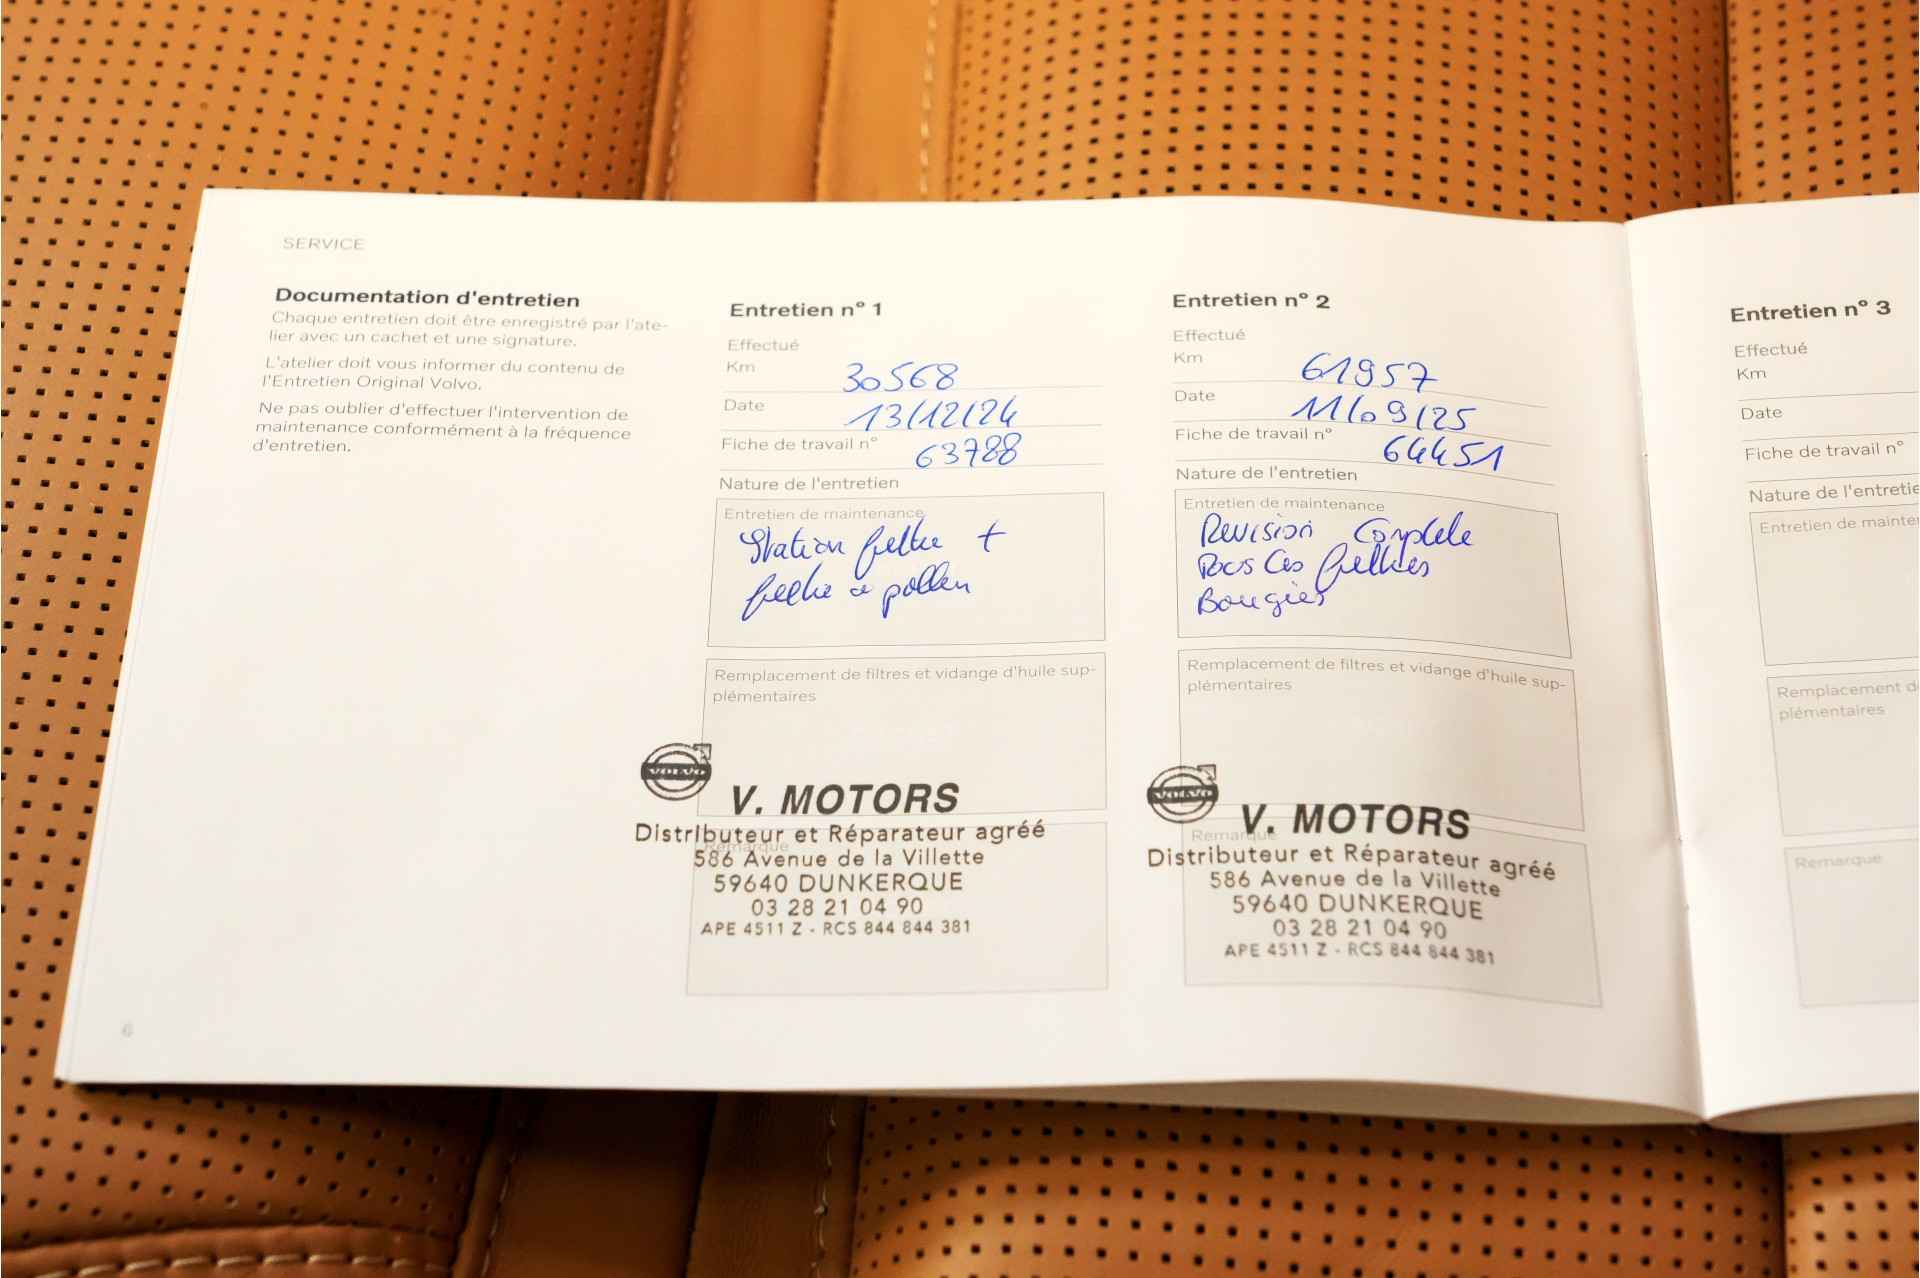 SERVICE
Documentation d'entretien
Chaque entretien doit être enregistré par l'ate-
lier avec un cachet et une signature.
L'atelier doit vous informer du contenu de
l'Entretien Original Volvo.
Ne pas oublier d'effectuer l'intervention de
maintenance conformément à la fréquence
d'entretien.
6
Entretien n° 1
Effectué
Km 30568
Date 13/12/24
Fiche de travail n° 63788
Nature de l'entretien
Entretien de maintenance
Station filtre +
filtre a pollen
Remplacement de filtres et vidange d'huile sup-
plémentaires
VOLVO
V. MOTORS
Distributeur et Réparateur agréé
Remarque
586 Avenue de la Villette
59640 DUNKERQUE
03 28 21 04 90
APE 4511 Z - RCS 844 844 381
Entretien n° 2
Effectué
Km 61957
Date 11/09/25
Fiche de travail n° 64451
Nature de l'entretien
Entretien de maintenance
Revision Complete
Tous les filtres
Bougies
Remplacement de filtres et vidange d'huile sup-
plémentaires
VOLVO
V. MOTORS
Remarque
Distributeur et Réparateur agréé
586 Avenue de la Villette
59640 DUNKERQUE
03 28 21 04 90
APE 4511 Z - RCS 844 844 381
Entretien n° 3
Effectué
Km
Date
Fiche de travail n°
Nature de l'entretie
Entretien de mainter
Remplacement d
plémentaires
Remarque